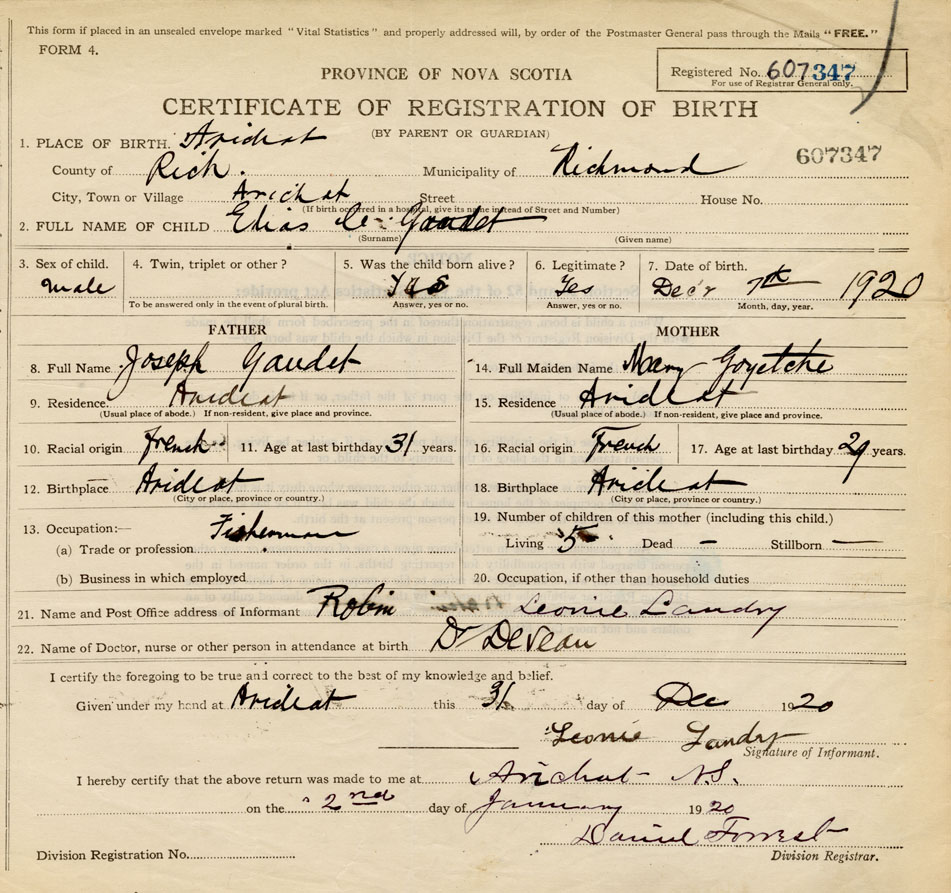 This form if placed in an unsealed envelope marked "Vital Statistics" and properly addressed will, by order of the Postmaster General pass through the Mails "FREE."
FORM 4.
Registered No. 607347
For use of Registrar General only.
PROVINCE OF NOVA SCOTIA
CERTIFICATE OF REGISTRATION OF BIRTH
(BY PARENT OR GUARDIAN)
607347
1. PLACE OF BIRTH. Arichat
County of Rich. Municipality of Richmond
City, Town or Village Arichat Street House No.
(If birth occurred in a hospital, give its name instead of Street and Number)
2. FULL NAME OF CHILD Elias Gaudet
(Surname) (Given name)
3. Sex of child. 4. Twin, triplet or other? 5. Was the child born alive? 6. Legitimate? 7. Date of birth.
male Yes Yes Dec'r 7th 1920
To be answered only in the event of plural birth. Answer, yes or no. Answer, yes or no. Month, day, year.
FATHER MOTHER
8. Full Name Joseph Gaudet 14. Full Maiden Name Mary Goyetche
9. Residence. Arichat 15. Residence Arichat
(Usual place of abode.) If non-resident, give place and province. (Usual place of abode.) If non-resident, give place and province.
10. Racial origin French 11. Age at last birthday 31 years. 16. Racial origin French 17. Age at last birthday 29 years.
12. Birthplace Arichat 18. Birthplace Arichat
(City or place, province or country.) (City or place, province or country.)
13. Occupation:— Fisherman 19. Number of children of this mother (including this child.)
(a) Trade or profession Living 5 Dead – Stillborn —
(b) Business in which employed 20. Occupation, if other than household duties
21. Name and Post Office address of Informant Robin Leonie Landry
22. Name of Doctor, nurse or other person in attendance at birth Dr Deveau
I certify the foregoing to be true and correct to the best of my knowledge and belief.
Given under my hand at Arichat this 31 day of Dec 1920
Leonie Landry
Signature of Informant.
I hereby certify that the above return was made to me at Arichat N.S.
on the 2nd day of January 1920
Daniel Forrest
Division Registration No. Division Registrar.